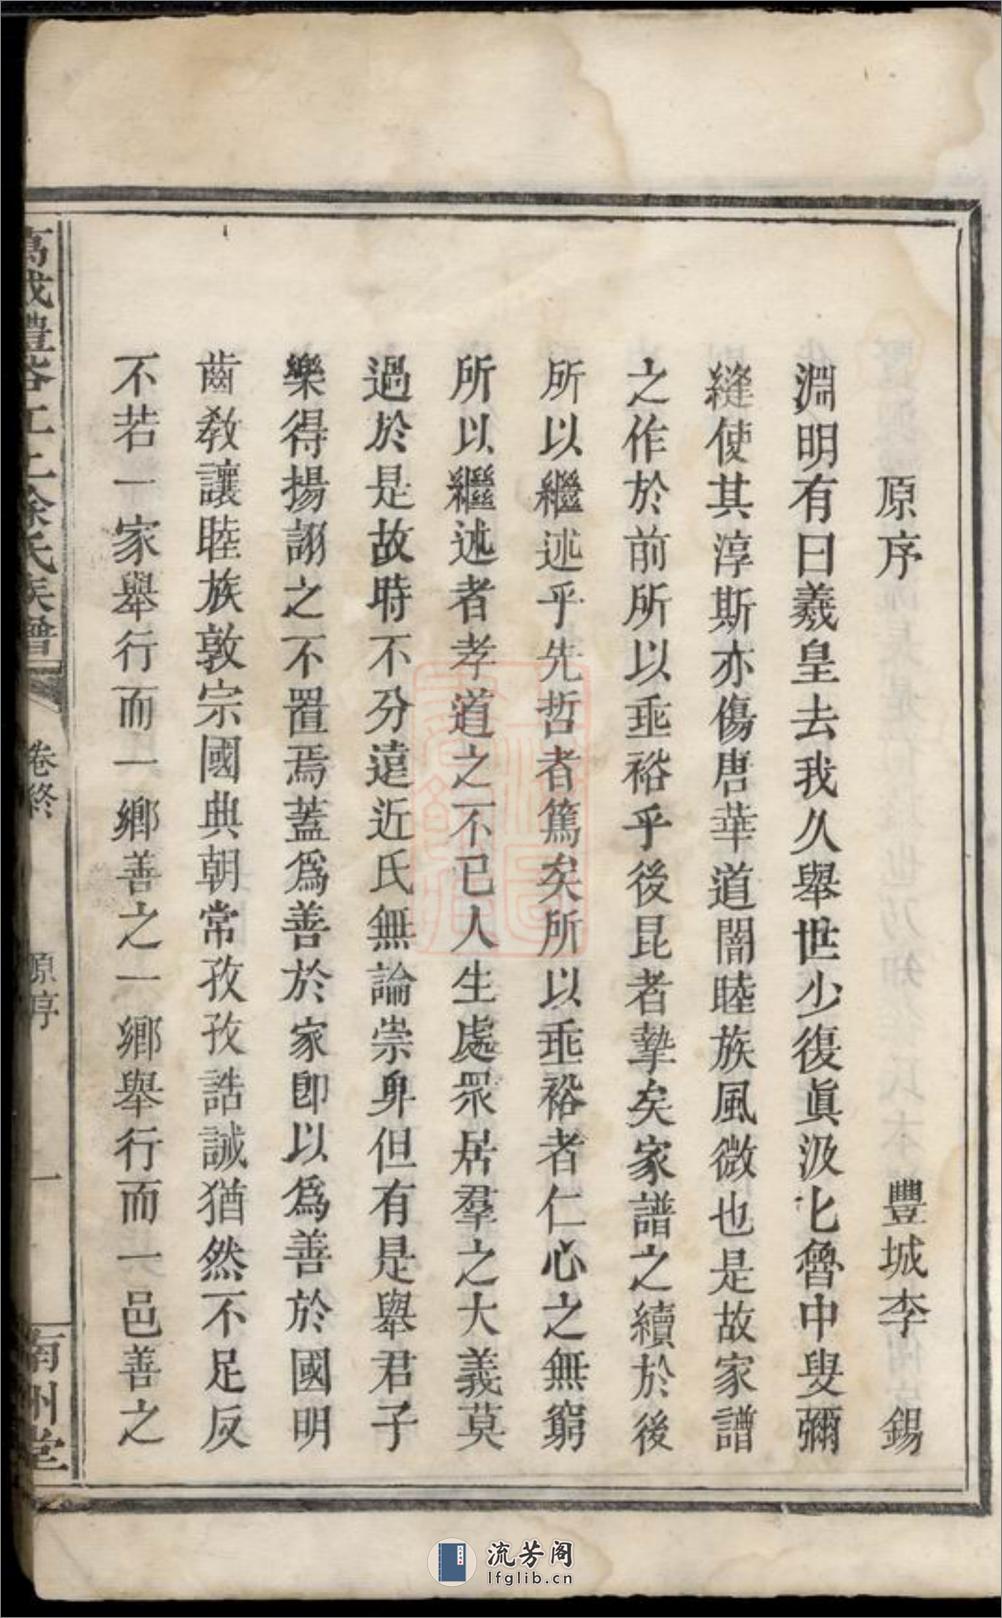 原序
豐城李 錫
淵明有曰羲皇去我久舉世少復眞汲汲魯中叟彌
縫使其淳斯亦傷唐華道闇睦族風微也是故家譜
之作於前所以垂裕乎後昆者摯矣家譜之續於後
所以繼述乎先哲者篤矣所以垂裕者仁心之無窮
所以繼述者孝道之不已人生處眾居羣之大義莫
過於是故時不分遠近氏無論崇卑但有是舉君子
樂得揚詡之不置焉蓋爲善於家卽以爲善於國明
齒敎讓睦族敦宗國典朝常孜孜誥誡猶然不足反
不若一家舉行而一鄉善之一鄉舉行而一邑善之
萬載豊谷工上徐氏族譜
卷終
原序
一
南州堂
流芳阁
lfglib.cn